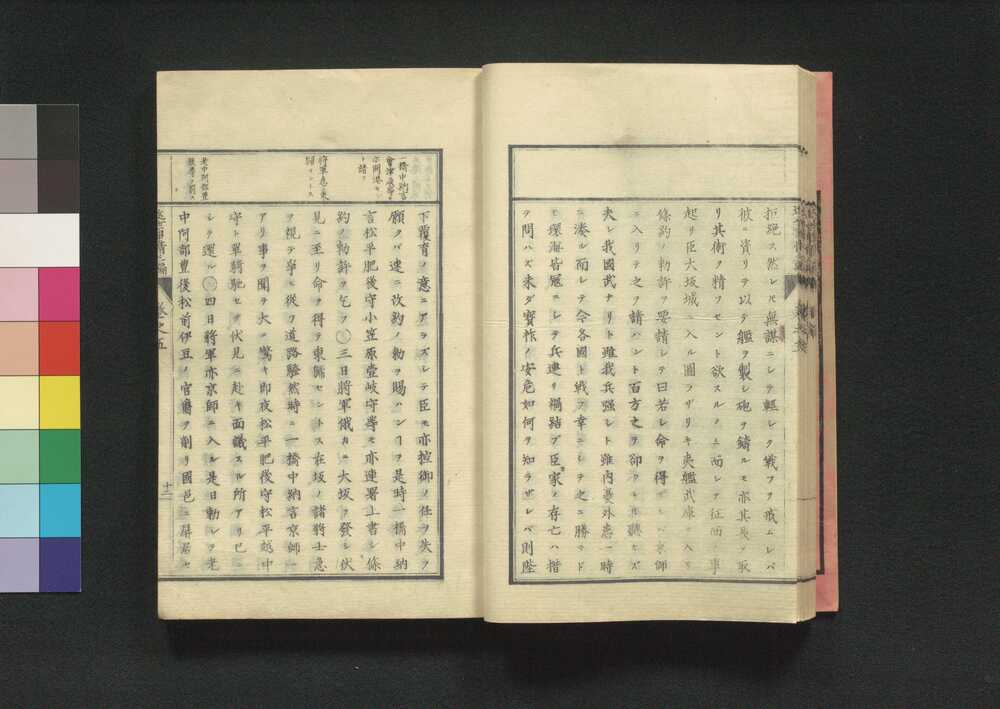 拒絶ス然レ𪜈無謀ニシテ輕シク戰フヲ戒ムレバ
彼ニ資リテ以テ艦ヲ製シ砲ヲ鑄ルモ亦其長ヲ取
リ其術ヲ精フセント欲スルノミ而シテ征西ノ事
起リ臣大坂城ニ入ル圖ラザリキ夷艦武庫ニ入リ
條約ノ勅許ヲ要請シテ曰若シ命ヲ得ズンバ京師
ニ入リテ之ヲ請ハント百方之ヲ卻クレ𪜈聽カズ
夫レ我國武ナリト雖我兵强シト雖内憂外患一時
ニ湊ル而シテ今各國ト戰フ幸ニシテ之ニ勝ツトド
モ環海皆冦ニシテ兵連リ禍結ブ臣家ノ存亡ハ措
ヲ問ハズ未ダ寳祚ノ安危如何ヲ知ラザレバ則陛
一橋中納言
會津 等
兵庫開港セン
ト請フ
將軍急ニ東
歸セントス
老中阿部豊
後等ヲ罰ス
下覆育ノ意ニアラズシテ臣モ亦控御ノ任ヲ失フ
願クバ速ニ改約ノ勅ヲ賜ハンヿヲ是時一橋中納
言松平肥後守小笠原壹岐守等モ亦連署上書シ條
約ノ勅許ヲ乞フ〇三日將軍俄カニ大坂ヲ發シ伏
見ニ至リ命ヲ得テ東歸セントス在坂ノ諸將士急
ヲ視テ爭ヒ從フ道路騷然時ニ一橋中納言京師ニ
アリ事ヲ聞キ大ニ驚キ即夜松平肥後守松平越中
守ト單騎馳セテ伏見ニ赴キ面議スル所アリ已ニ
シテ還ル〇四日將軍亦京師ニ入ル是日勅シテ老
中阿部豊後松前伊豆ノ官爵ヲ削リ國邑ニ屏居セ
卷之五
十二